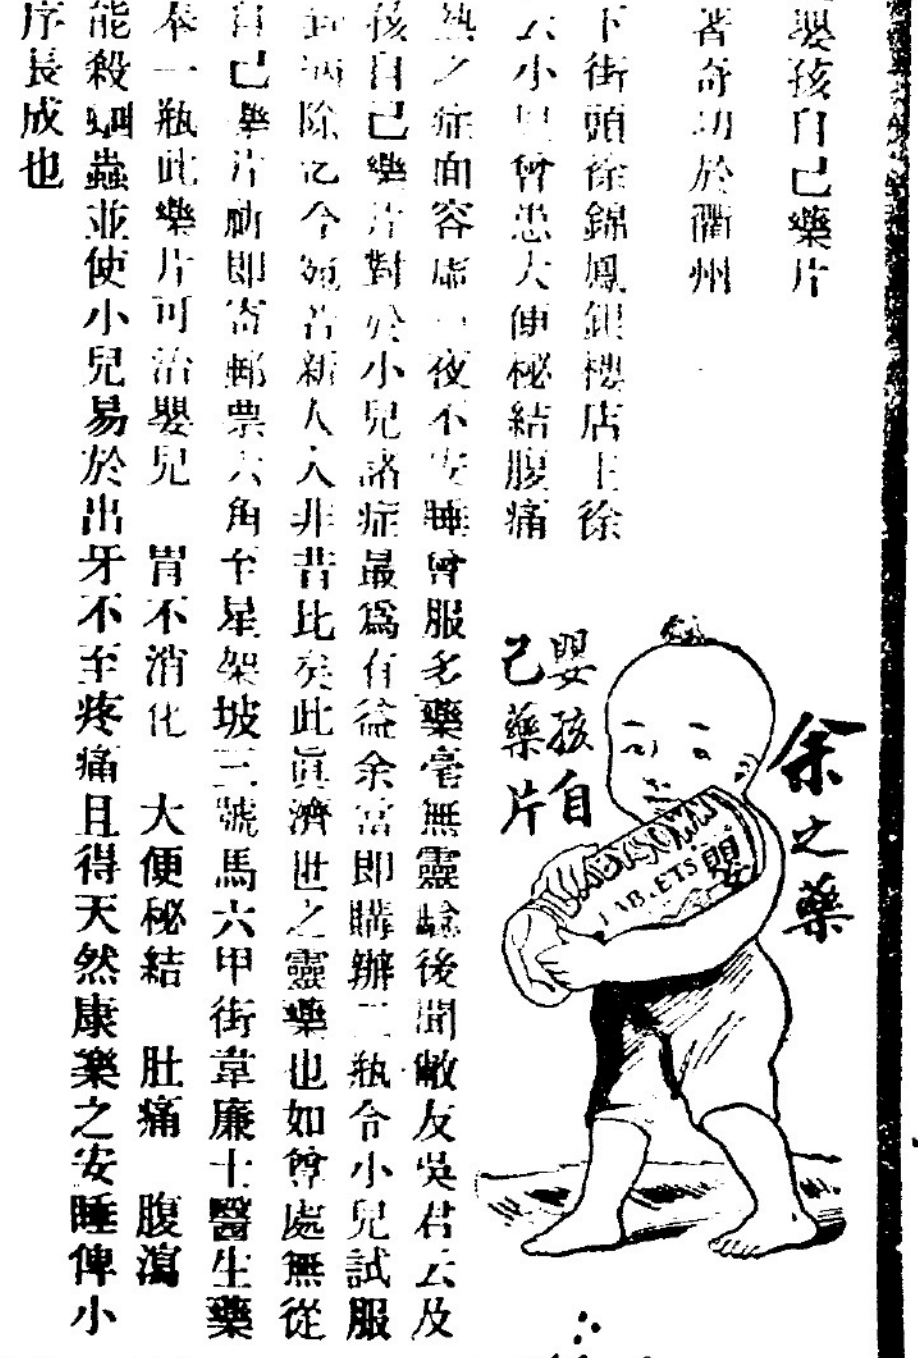 嬰孩自己藥片
著奇功於衢州
下街頭徐錦鳳銀樓店主徐
云小兒曾患大便秘結腹痛
熱之症面容虛 夜不安睡曾服多藥毫無靈驗後聞敝友吳君云及
孩自己藥片對於小兒諸症最爲有益余當即購辦二瓶令小兒試服
病除迄今宛若新人入非昔比矣此眞濟世之靈藥也如尊處無從
自己藥片 即寄郵票六角至星架坡三號馬六甲街韋廉士醫生藥
奉一瓶此藥片可治嬰兒 胃不消化 大便秘結 肚痛 腹瀉
能殺蛔蟲並使小兒易於出牙不至疼痛且得天然康樂之安睡俾小
序長成也
余之藥
嬰孩自
己藥片
BABYS OWN
TABLETS 嬰